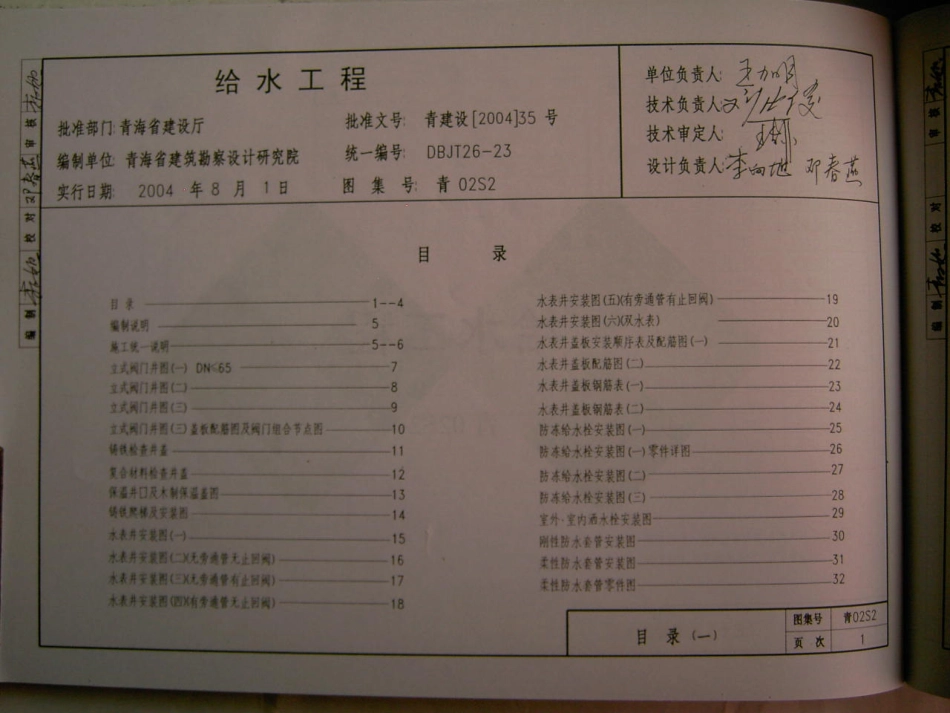 给水工程
批准部门: 青海省建设厅
批准文号: 青建设[2004]35 号
编制单位: 青海省建筑勘察设计研究院
统一编号: DBJT26-23
实行日期: 2004 年 8 月 1 日
图 集 号: 青 02S2
单位负责人:
技术负责人:
技术审定人:
设计负责人: 邓春燕
审 核
校 对
编 制
目 录
目 录 1--4
编制说明 5
施工统一说明 5--6
立式阀门井图(一) DN<65 7
立式阀门井图(二) 8
立式阀门井图(三) 9
立式阀门井图(三)盖板配筋图及阀门组合节点图 10
铸铁检查井盖 11
复合材料检查井盖 12
保温井口及木制保温盖图 13
铸铁爬梯及安装图 14
水表井安装图(一) 15
水表井安装图(二)(无旁通管无止回阀) 16
水表井安装图(三)(无旁通管有止回阀) 17
水表井安装图(四)(有旁通管无止回阀) 18
水表井安装图(五)(有旁通管有止回阀) 19
水表井安装图(六)(双水表) 20
水表井盖板安装顺序表及配筋图(一) 21
水表井盖板配筋图(二) 22
水表井盖板钢筋表(一) 23
水表井盖板钢筋表(二) 24
防冻给水栓安装图(一) 25
防冻给水栓安装图(一)零件详图 26
防冻给水栓安装图(二) 27
防冻给水栓安装图(三) 28
室外·室内洒水栓安装图 29
刚性防水套管安装图 30
柔性防水套管安装图 31
柔性防水套管零件图 32
目 录 (一)
图集号 青02S2
页 次 1